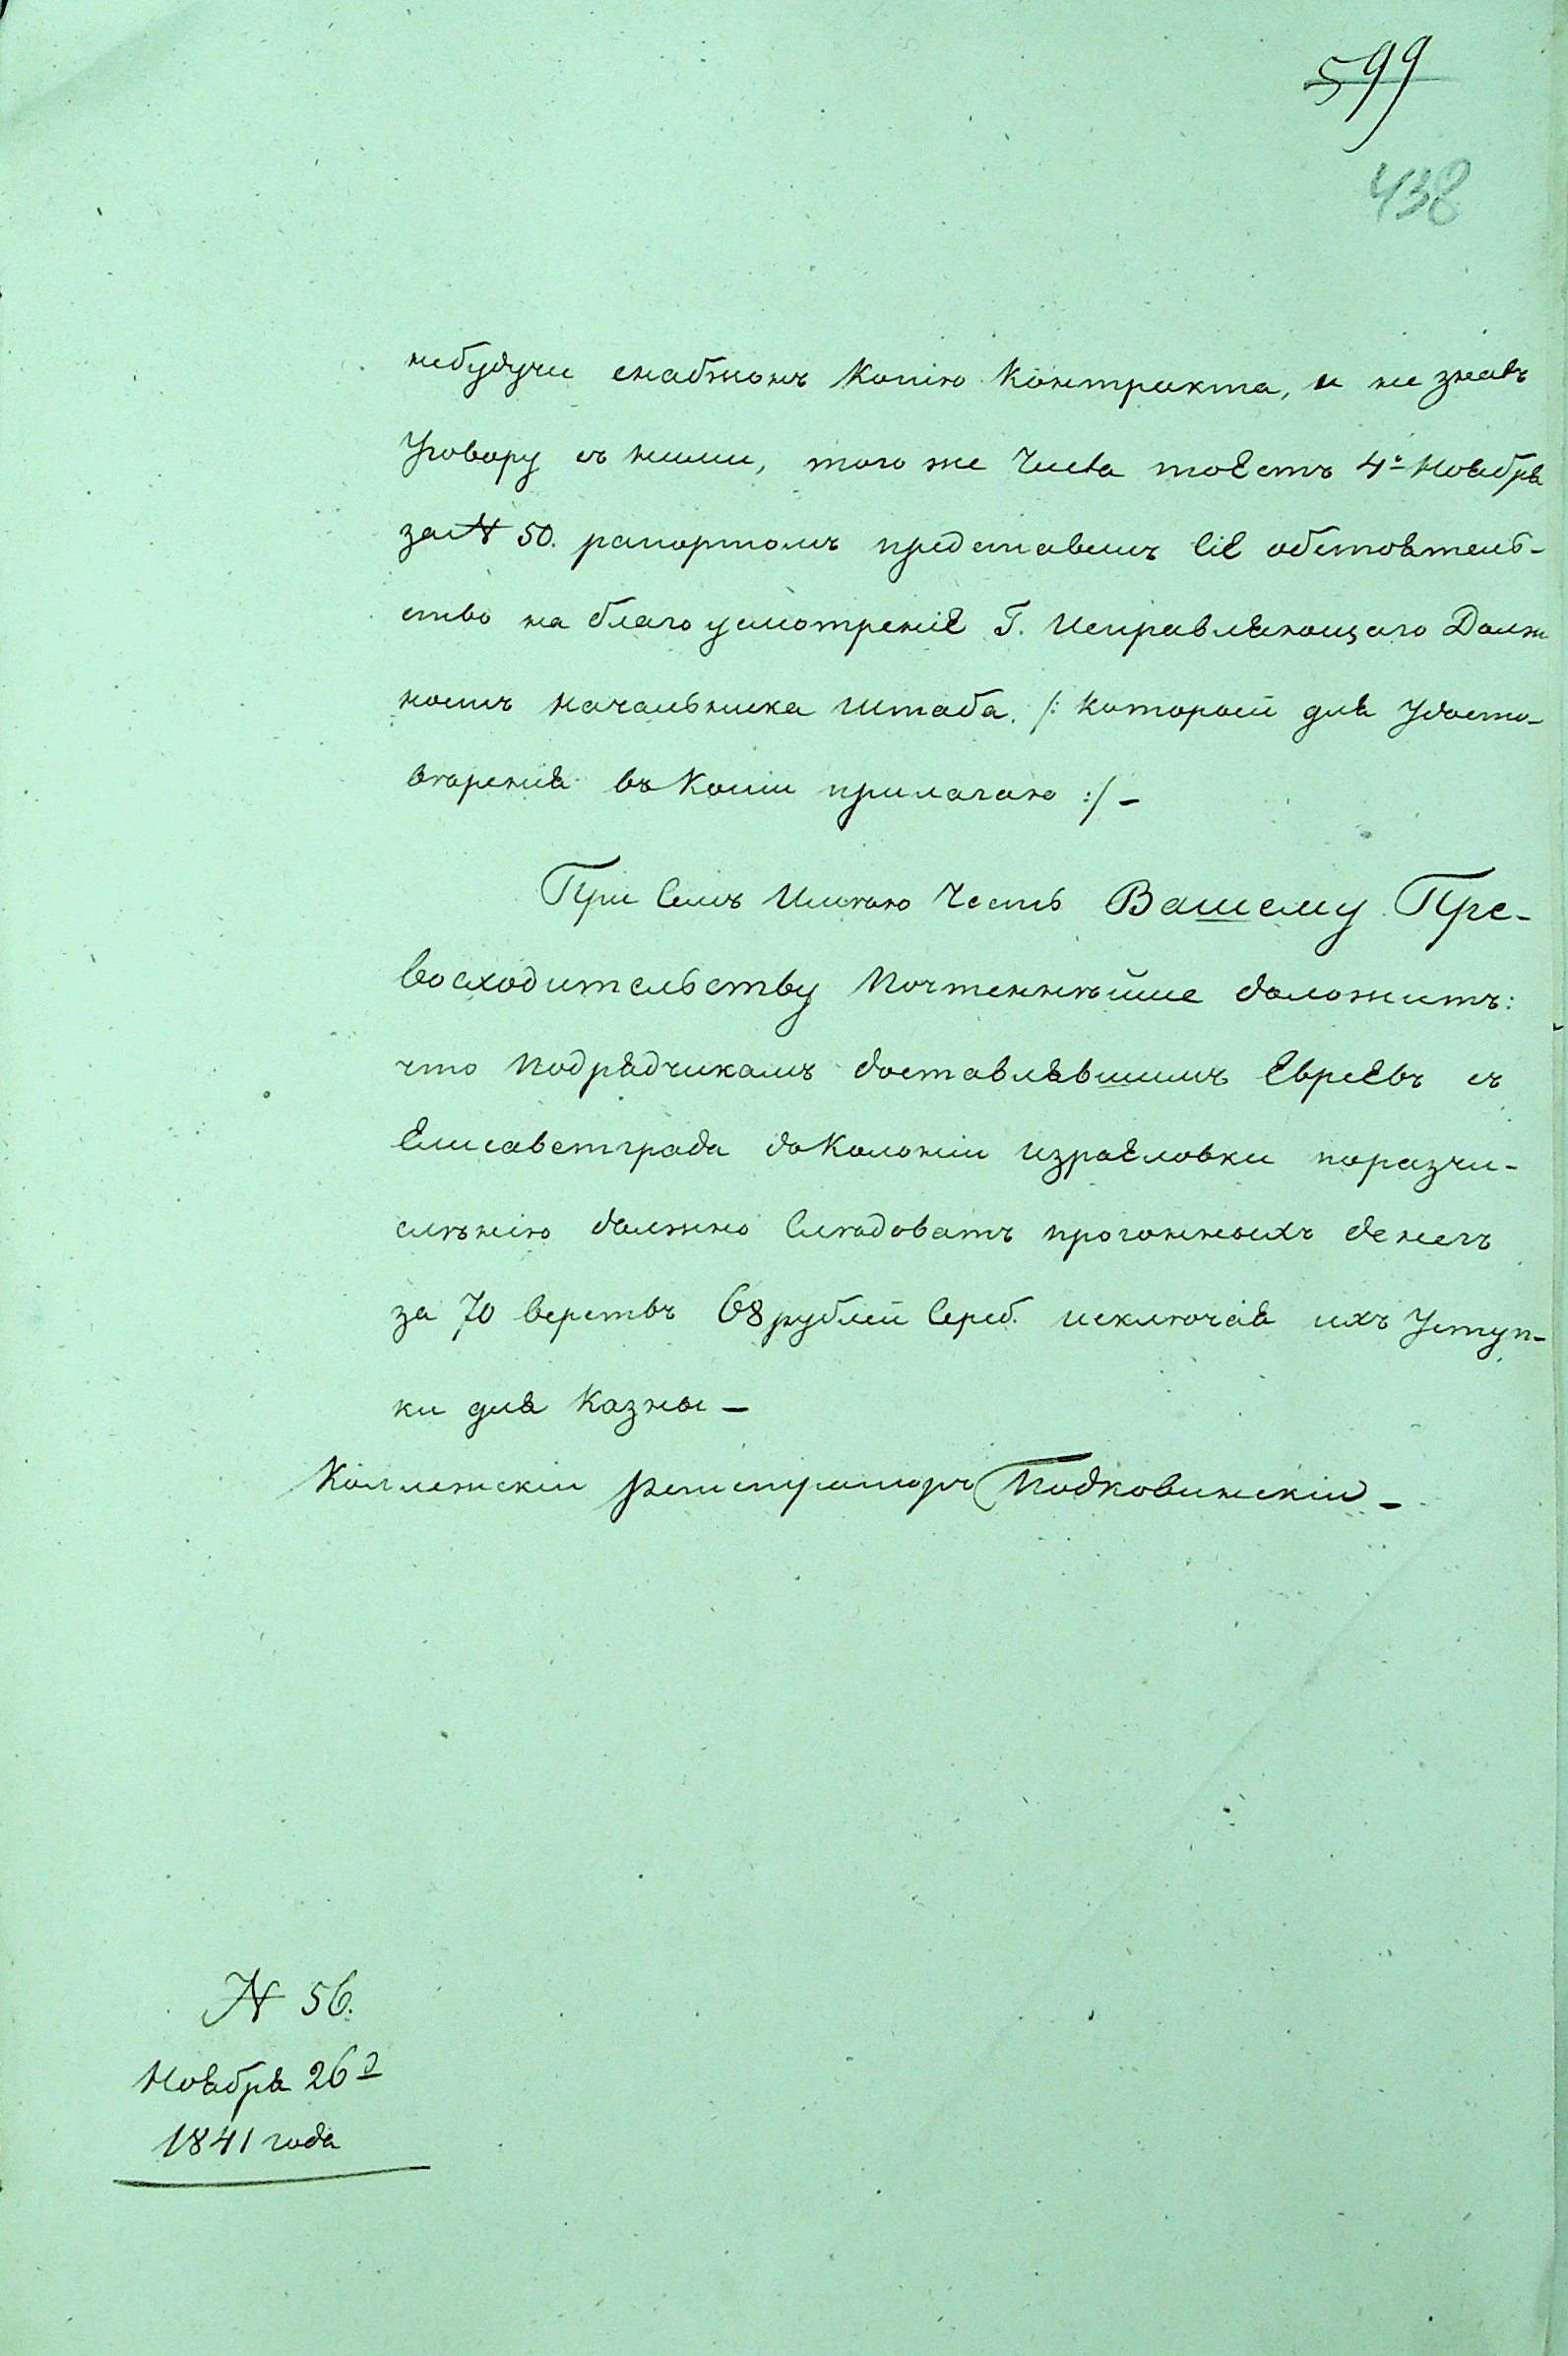 599
438
небудучи снабжонъ Копiю Контракта, и не знавъ
Уговору съ ними, того же Числа тоесть 4º Ноября
за N 50. рапортомъ представилъ Сiе обстоятель-
ство на благоусмотренiе Г. Исправляющаго Долж
ность Начальника Штаба. /: которой для Удосто-
вѣренiя въ Копiи прилагаю :/ -
При Семъ Имѣю Честь Вашему Пре-
восходительству Почтеннѣйше доложить:
что Подрядчикамъ доставлявшимъ Евреевъ съ
Елисаветграда доКолонiи Израеловки поразчи-
слѣнiю должно Слѣдовать прогонныхъ денегъ
за 70 верствъ 68 рублей Сереб. исключая ихъ Уступ-
ки для Казны -
Коллежскiи Регистраторъ Подковинскiи -
N 56.
Ноября 26 д
1841 года